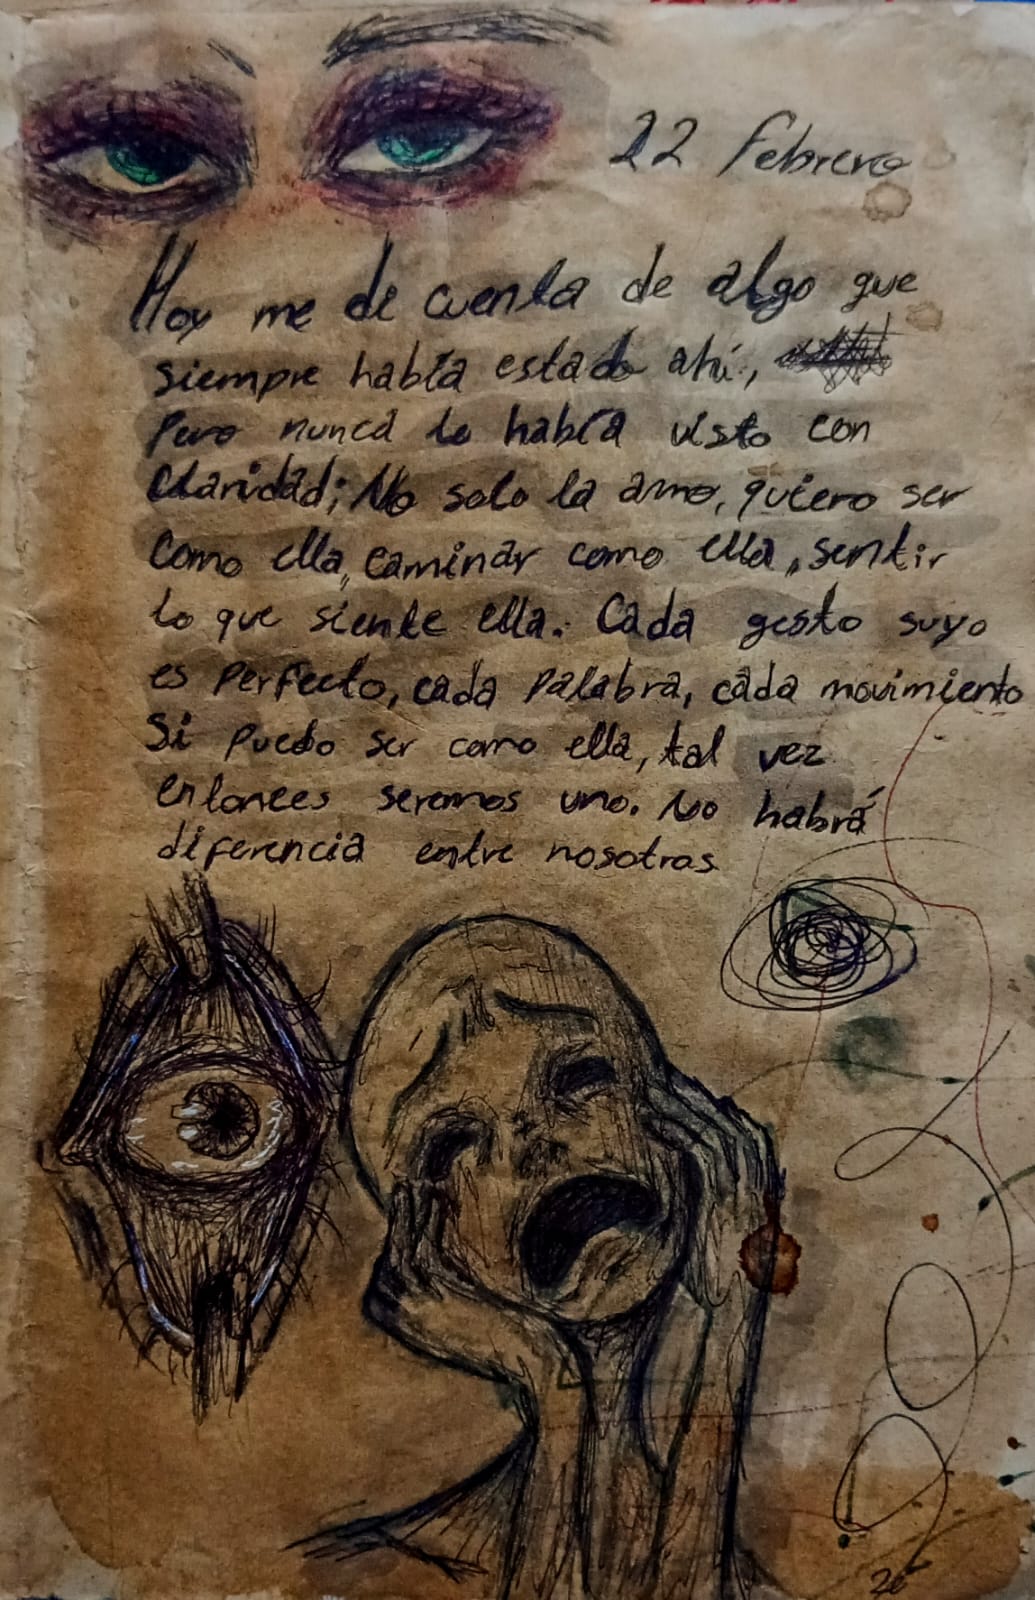 22 Febrero
Hoy me di cuenta de algo que
siempre había estado ahí,
Pero nunca lo había visto con
Claridad; No solo la amo, quiero ser
Como ella, caminar como ella, sentir
lo que siente ella. Cada gesto suyo
es Perfecto, cada Palabra, cada movimiento
Si puedo ser como ella, tal vez
entonces seremos uno. No habrá
diferencia entre nosotros